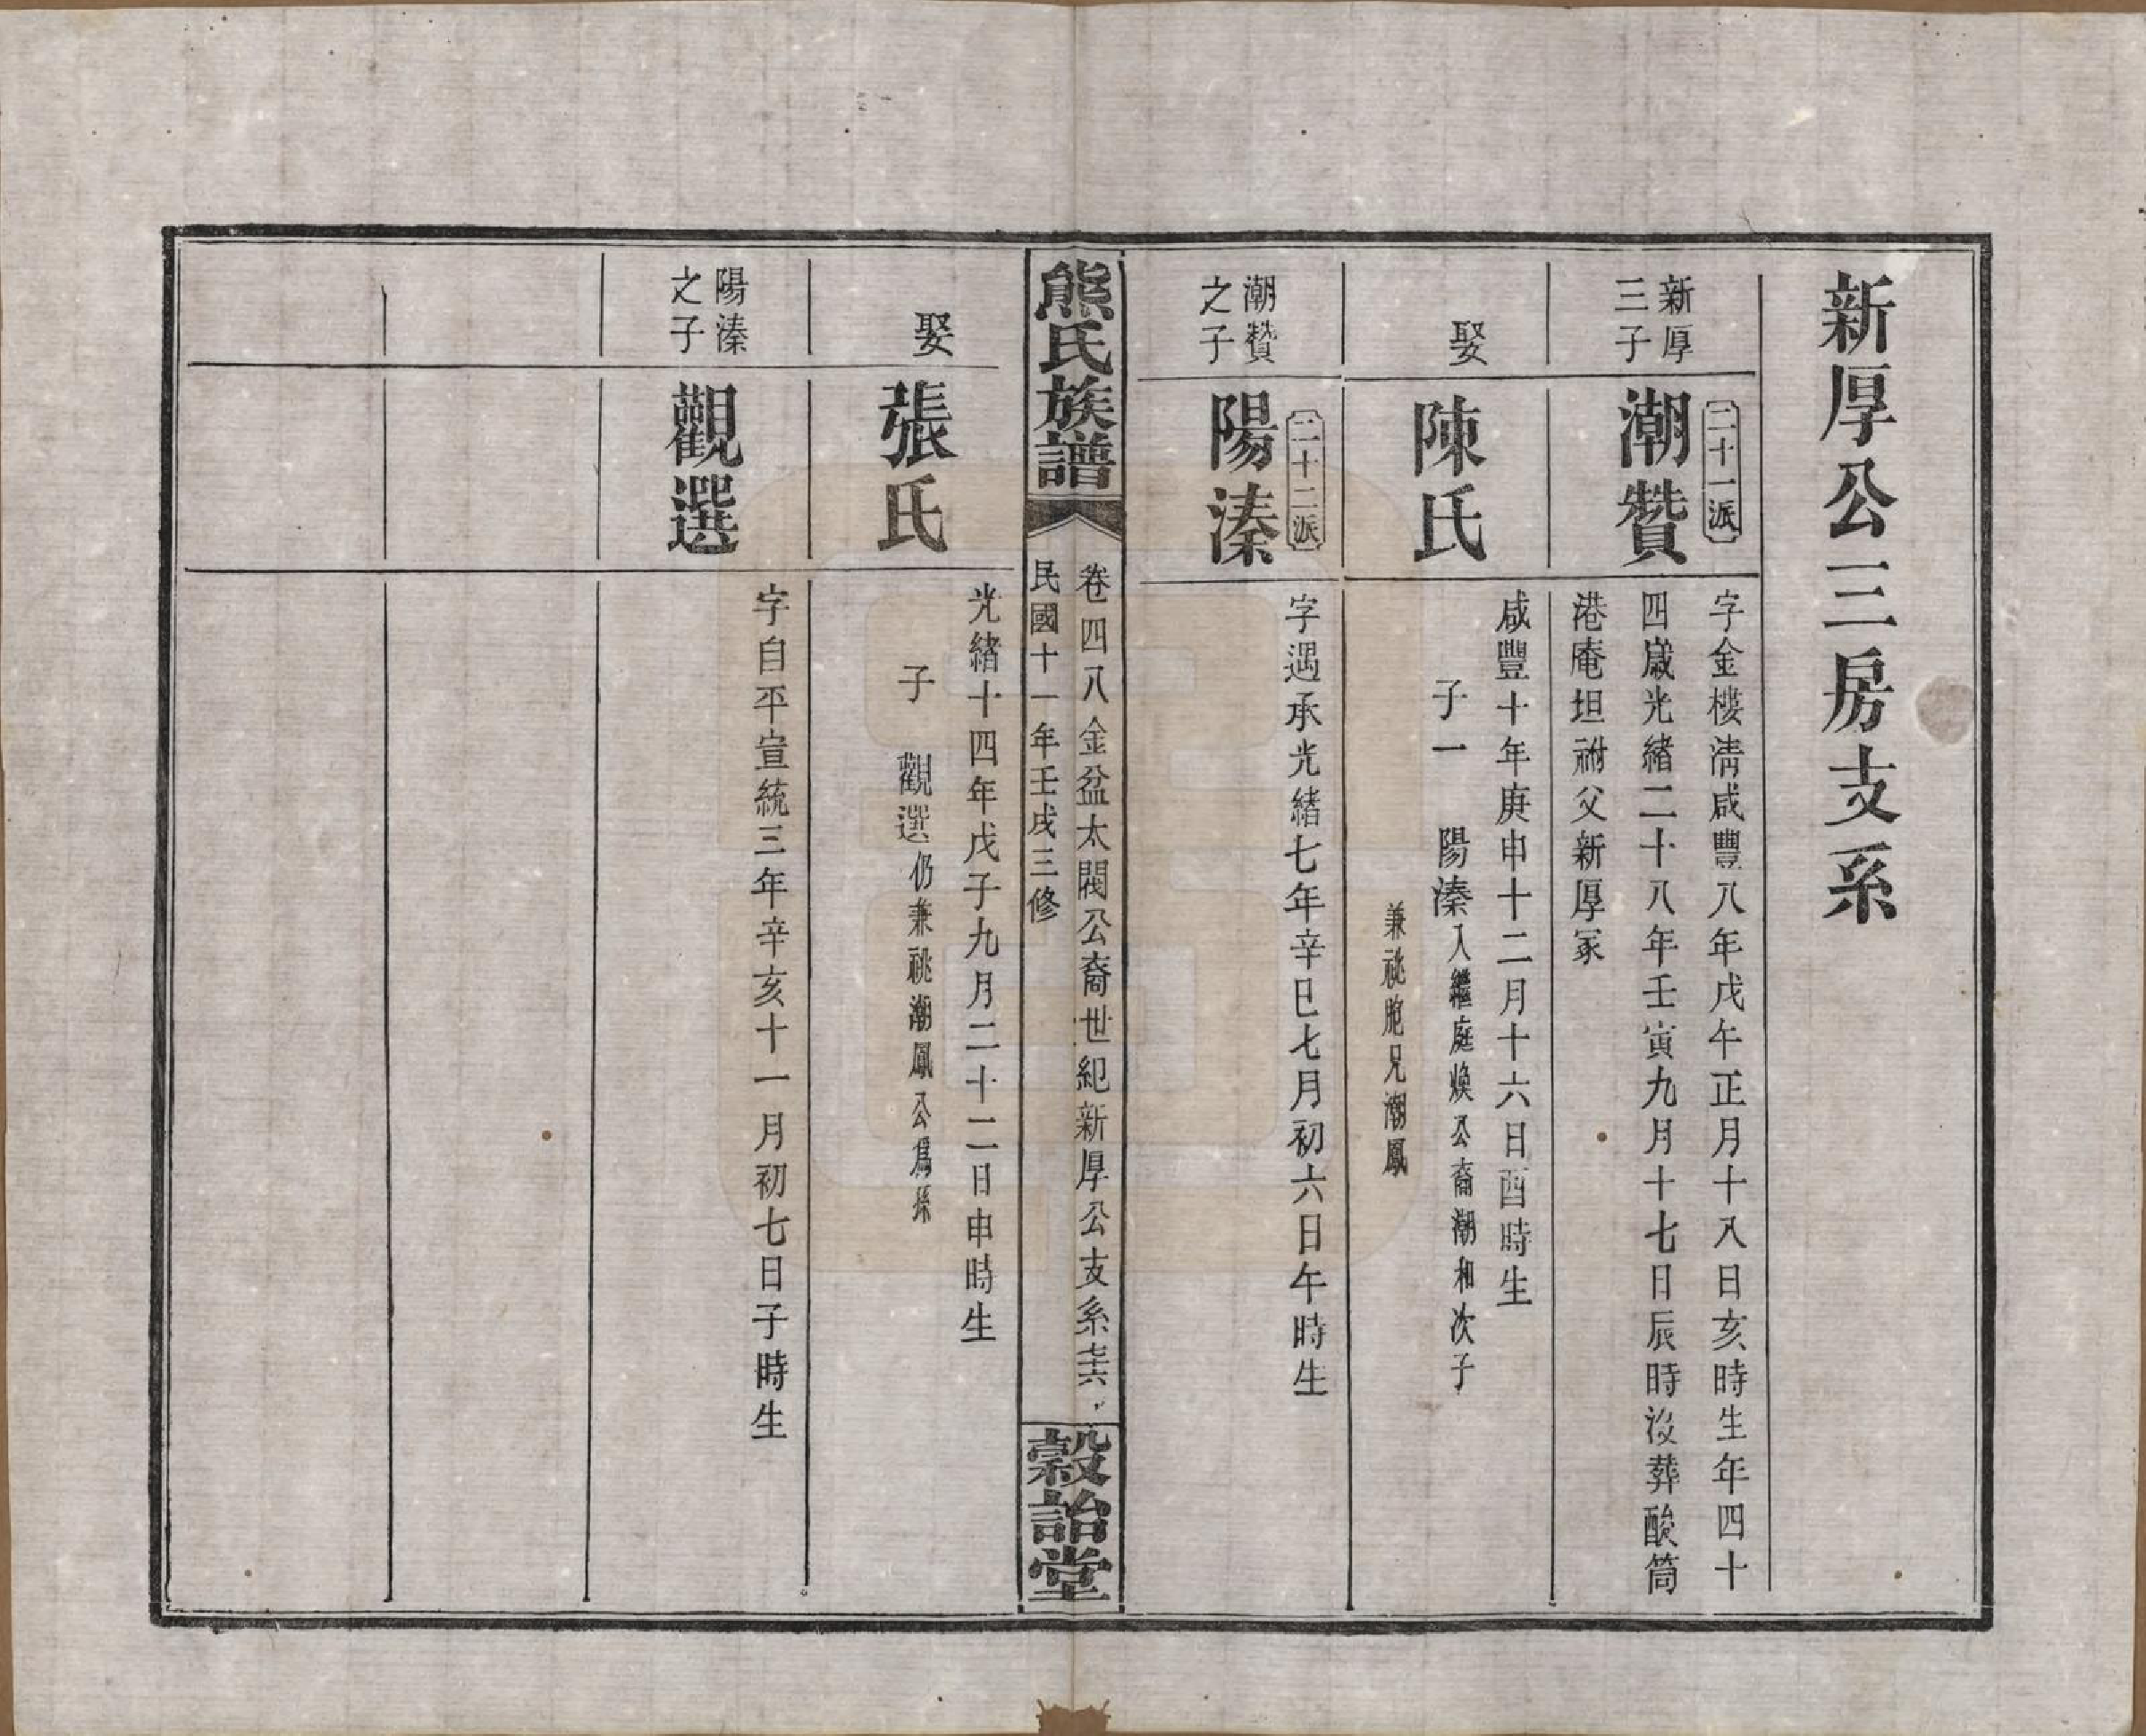 新厚公三房支系
新厚
三子
二十一派
潮贊
字金樓淸咸豐八年戊午正月十八日亥時生年四十
四歲光緒二十八年壬寅九月十七日辰時沒葬酸筒
港庵坦祔父新厚冢
娶
陳氏
咸豐十年庚申十二月十六日酉時生
子一 陽溱入繼庭煥公裔潮和次子
兼祧胞兄潮鳳
潮贊
之子
二十二派
陽溱
字遇承光緒七年辛巳七月初六日午時生
熊氏族譜
卷四八金盆太閣公裔世紀新厚公支系
民國十一年壬戌三修
穀詒堂
娶
張氏
光緒十四年戊子九月二十二日申時生
子 觀選仍兼祧潮鳳公爲孫
陽溱
之子
觀選
字自平宣統三年辛亥十一月初七日子時生